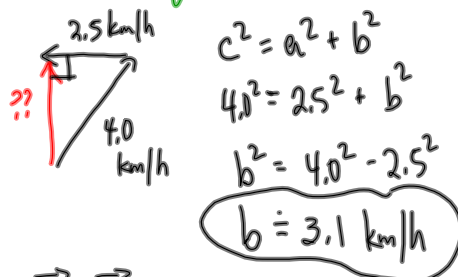 2.5 km/h
??
4.0
km/h
c² = a² + b²
4.0² = 2.5² + b²
b² = 4.0² - 2.5²
b ≐ 3.1 km/h